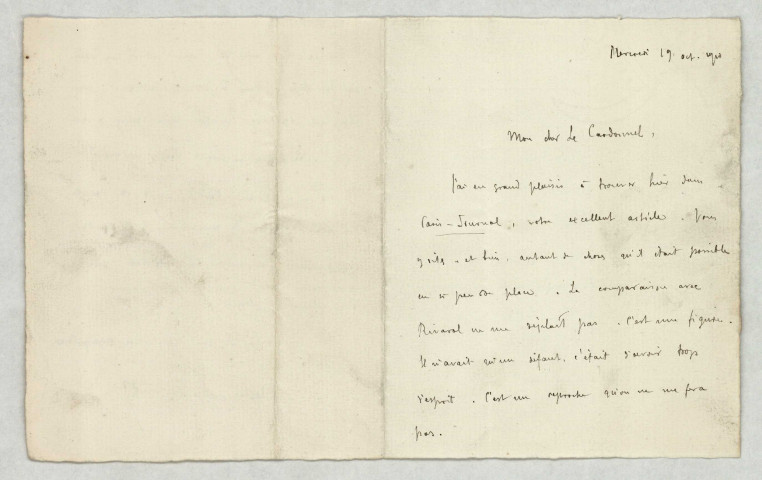 Mercredi 19 oct. 1910
Mon cher Le Cardonnel,
J'ai eu grand plaisir à trouver hier dans
Paris-Journal, votre excellent article. Vous
y dites, et bien, autant de choses qu'il était possible
en si peu de place. La comparaison avec
Rivarol ne me déplaît pas. C'est une figure.
Il n'avait qu'un défaut, c'était d'avoir trop
d'esprit. C'est un reproche qu'on ne me fera
pas.